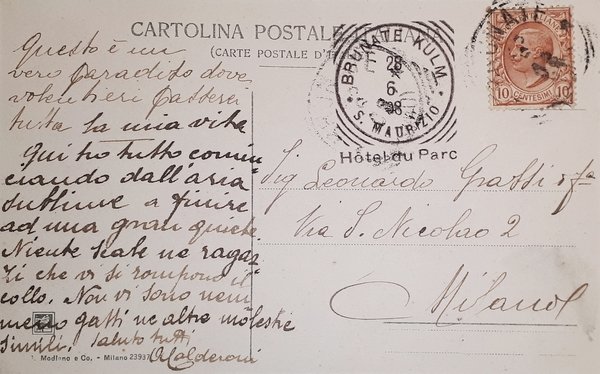 CARTOLINA POSTALE
(CARTE POSTALE D'I
Questo è un
vero Paradiso dove
volentieri passerei
tutta la mia vita
Qui ho tutto comin
ciando dall'aria
sublime a finire
ad una gran quiete
Niente scale ne ragaz-
zi che vi si rompono il
collo. Non vi sono nem
meno gatti ne altre molestie
simili. Saluto tutti
A Calderoni
BRUNATE-KULM.
28
6
08
S. MAURIZIO
Hôtel du Parc
NATE
10 CENTESIMI 10
Sig Leonardo Grassi & fa
Via S. Nicolao 2
Milano
Modiano e Co. - Milano 2393